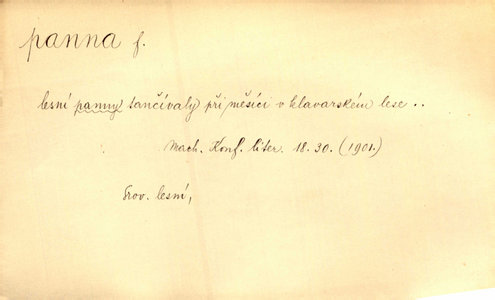 panna f.
lesní panny tančívaly při měsíci v hlavarském lese ..
Mach. Konf. liter. 18. 30. (1901.)
Srov. lesní,